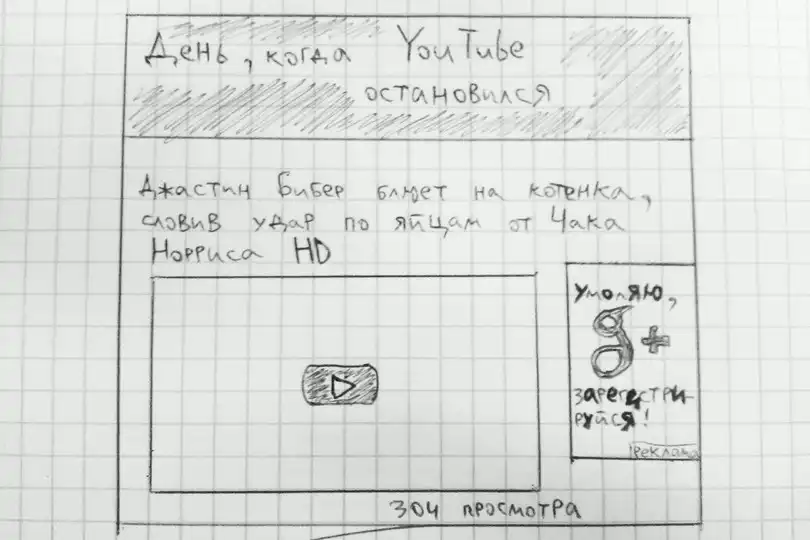 День, когда YouTube
остановился
Джастин Бибер блюет на котенка,
словив удар по яйцам от Чака
Норриса HD
умоляю,
g+
зарегестри-
руйся!
реклама
304 просмотра